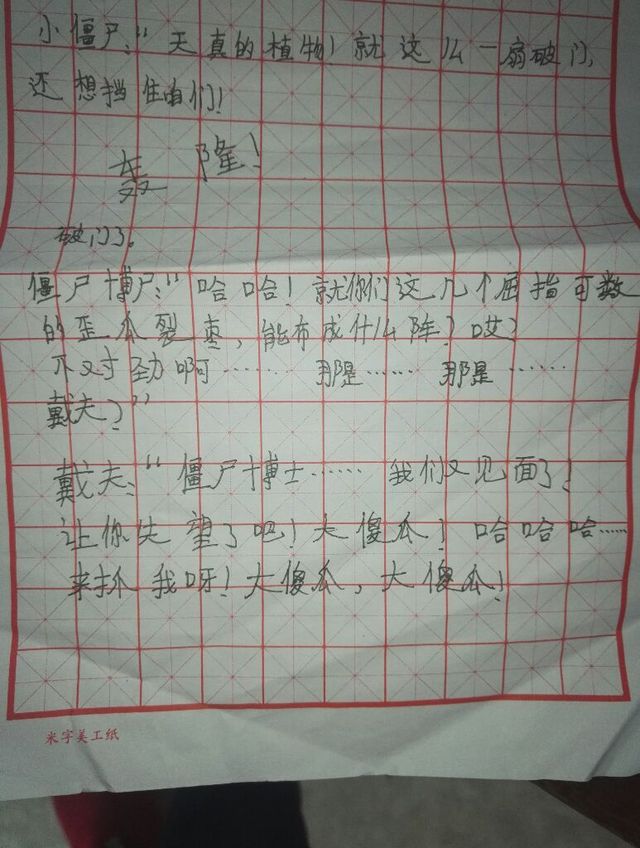 小僵尸：“天真的植物！就这么一扇破门，
还想挡住咱们！
轰隆！
破门了。
僵尸博尸：“哈哈！就你们这几个屈指可数
的歪瓜裂枣，能布成什么阵？哎？
不对劲啊…… 那是…… 那是……
戴夫？”
戴夫：“僵尸博士…… 我们又见面了！
让你失望了吧！大傻瓜！哈哈哈……
来抓我呀！大傻瓜，大傻瓜！
米字美工纸